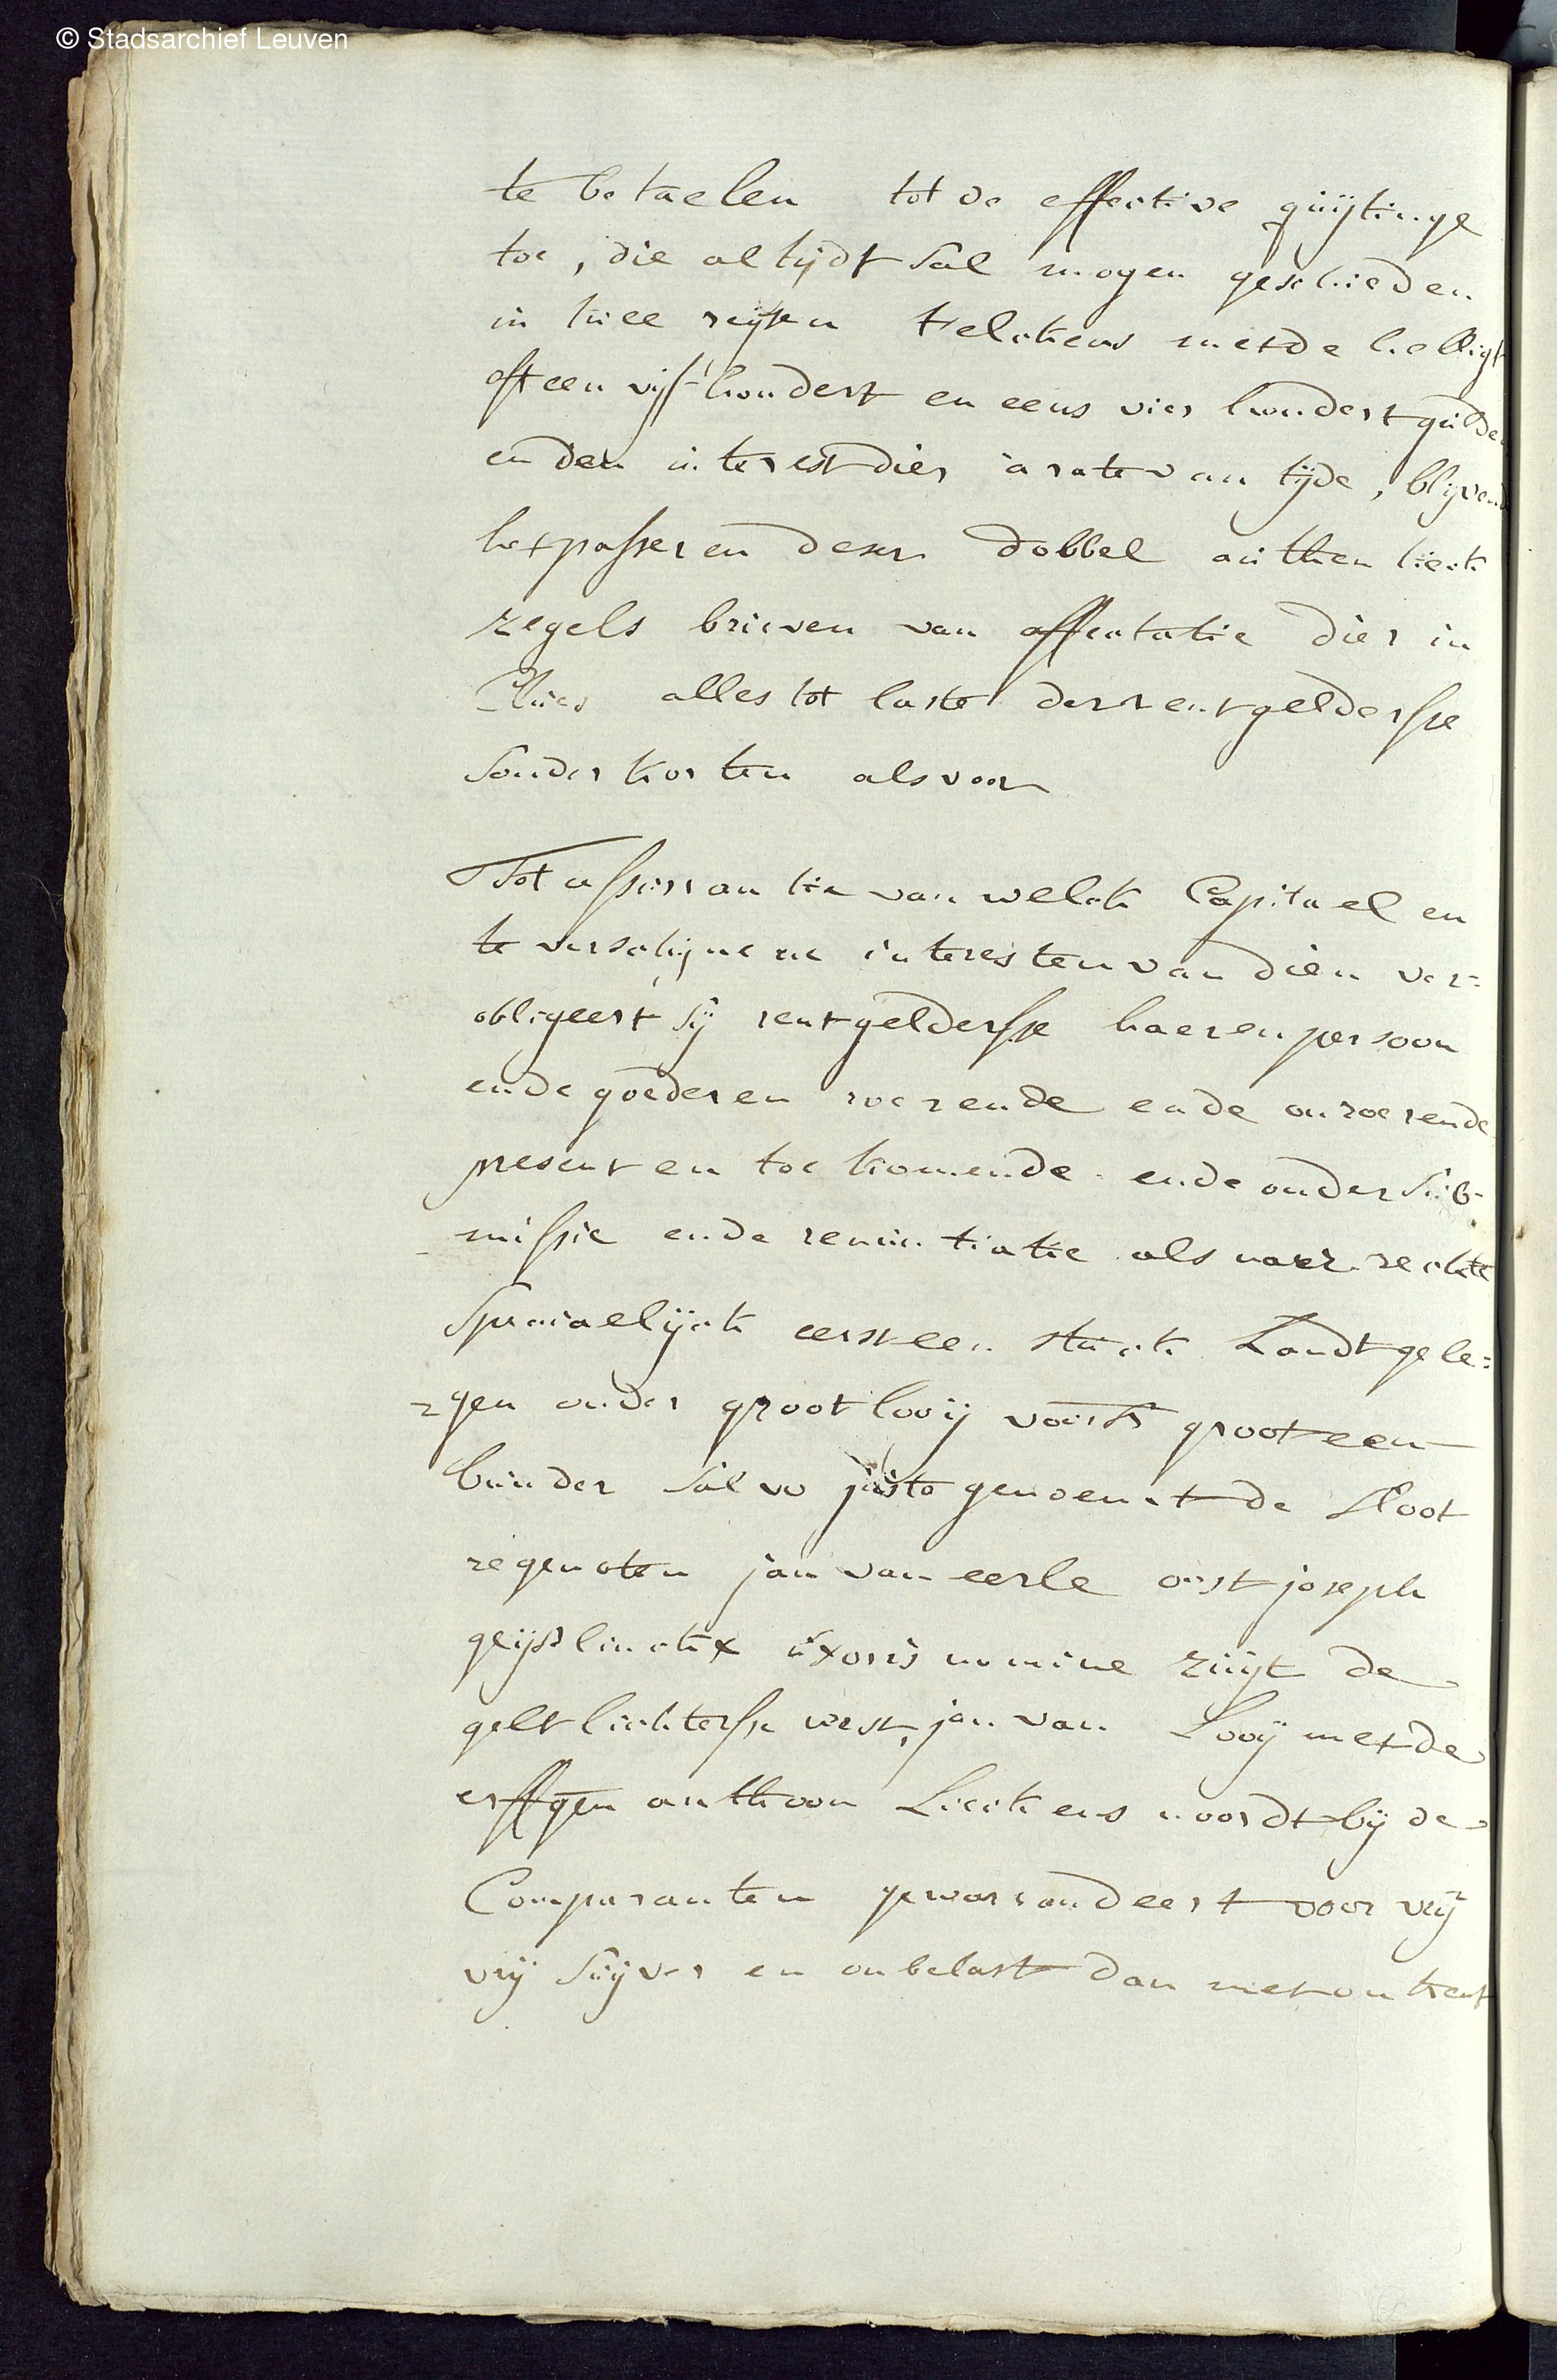 © Stadsarchief Leuven
te betaelen tot de effective quijtinge
toe, die altijdt sal mogen geschieden
in twee reijsen t'elckens met de helligt
oft een vijf hondert en eens vier hondert gulden
en den interest dier à rate van tijde, blijvende
het passeren deser dobbel authentieck
zegels brieven van affectatie dier in
alles tot laste der rentgelderssse
sonder korten als voor
Tot assurantie van welck Capitael en
te verschijnene interesten van dien ver=
obligeert sij rentgelderssse haeren persoon
ende goederen roerende ende onroerende
present en toekomende ende onder sub-
missie ende renuntiatie als naer rechte
speciaelijck eerst een stuck Landt gele=
=gen onder grootlooij voors groot een
bunder salvo justo genoemt de Sloot
regenoten jan van eerle oost joseph
geijselinckx uxoris nomine zuijt de
geltlichtersse west, jan van Looij met de
erffgen anthoon Lieckens noordt bij de
Comparanten gewarrandeert voor vrij
vrij suijver en onbelast dan met